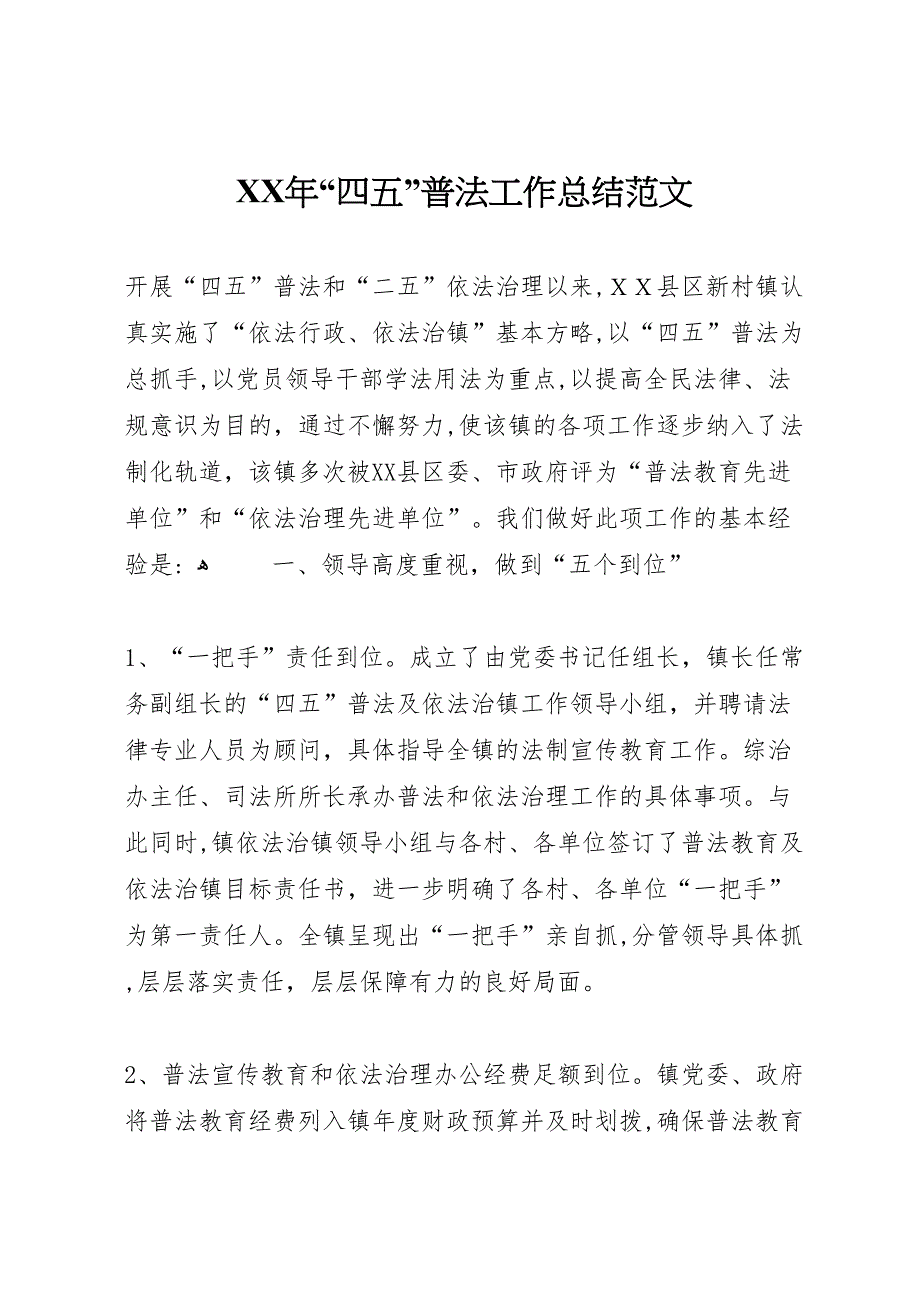 XX年“四五”普法工作总结范文
开展“四五”普法和“二五”依法治理以来,ＸＸ县区新村镇认
真实施了“依法行政、依法治镇”基本方略,以“四五”普法为
总抓手,以党员领导干部学法用法为重点,以提高全民法律、法
规意识为目的，通过不懈努力,使该镇的各项工作逐步纳入了法
制化轨道，该镇多次被XX县区委、市政府评为“普法教育先进
单位”和“依法治理先进单位”。我们做好此项工作的基本经
验是: ﻫ 一、领导高度重视，做到“五个到位”
1、“一把手”责任到位。成立了由党委书记任组长，镇长任常
务副组长的“四五”普法及依法治镇工作领导小组，并聘请法
律专业人员为顾问，具体指导全镇的法制宣传教育工作。综治
办主任、司法所所长承办普法和依法治理工作的具体事项。与
此同时,镇依法治镇领导小组与各村、各单位签订了普法教育及
依法治镇目标责任书，进一步明确了各村、各单位“一把手”
为第一责任人。全镇呈现出“一把手”亲自抓,分管领导具体抓
,层层落实责任，层层保障有力的良好局面。
2、普法宣传教育和依法治理办公经费足额到位。镇党委、政府
将普法教育经费列入镇年度财政预算并及时划拨,确保普法教育